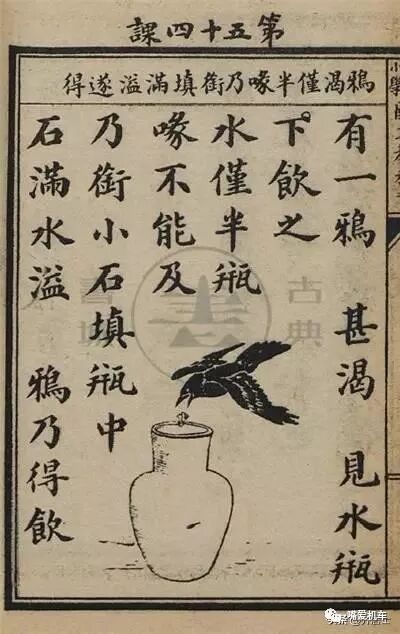 第五十四課
鴉渴僅半喙乃銜填滿溢遂得
有一鴉 甚渴 見水瓶
下飲之
水僅半瓶
喙不能及
乃銜小石填瓶中
石滿水溢 鴉乃得飲
古典
嘴爱机车